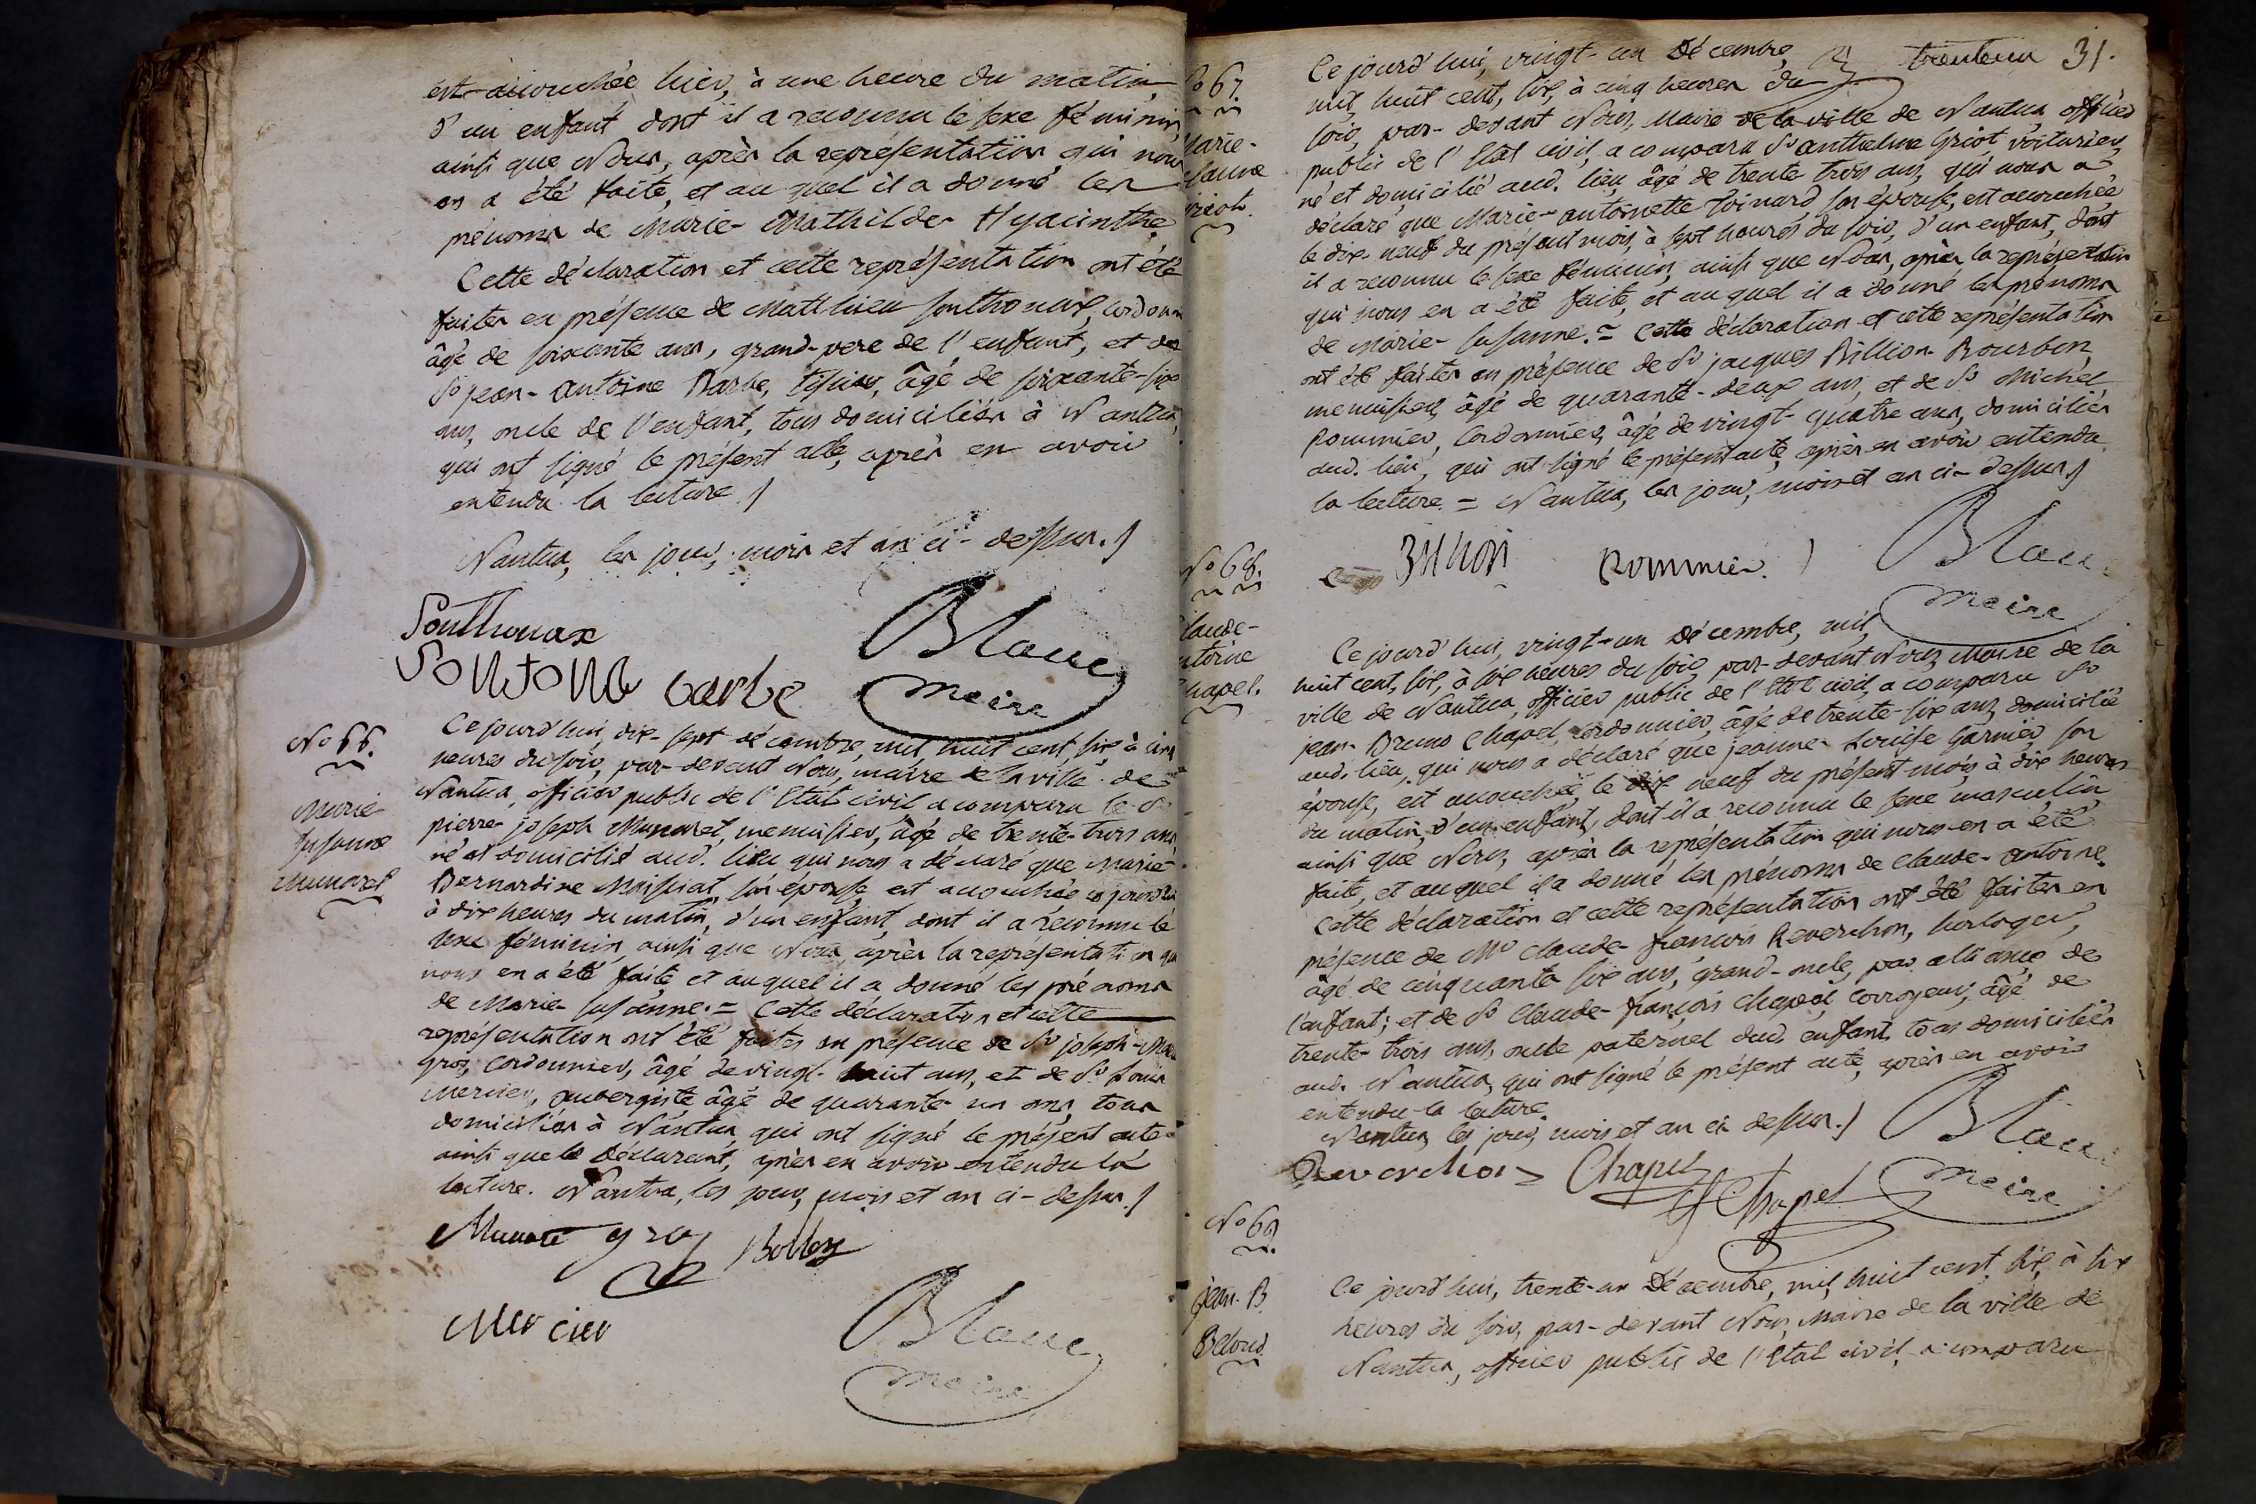 est accouchée hier, à une heure du matin,
d'un enfant dont il a reconnu le sexe féminin
ainsi que Nous, après la représentation qui nous
en a été faite, et au quel il a donné les
prénoms de Marie-Mathilde-Hyacinthe
Cette déclaration et cette représentation ont été
faites en présence de Matthieu Sonthonax, cordonn
âgé de soixante ans, grand-pere de l'enfant, et de
Sr jean-antoine Barbe, tissier, âgé de soixante-six
ans, oncle de l'enfant, tous domiciliés à Nantua,
qui ont signé le présent acte, après en avoir
entendu la lecture.
Nantua, les jour, mois et an ci-dessus.
Sonthonax
SONTONA barbe
Blanc
Maire
No 66.
Marie
Susanne
Munaret
Ce jourd'hui, dix-sept décembre, mil huit cent, six à cinq
heures du soir, par-devant Nous, maire de la ville de
Nantua, officier public de l'Etat civil a comparu le Sr
pierre-joseph Munaret, menuisier, âgé de trente-trois ans
né et domicilié aud. lieu qui nous a déclaré que Marie
Bernardine Moissiat, son épouse, est accouchée ce jourd'hui
à dix heures du matin, d'un enfant, dont il a reconnu le
sexe féminin, ainsi que Nous, après la représentation qui
nous en a été faite, et auquel il a donné les prénoms
de Marie-Susanne. = Cette déclaration et cette
représentation ont été faites en présence de Sr joseph-
Gros, cordonnier, âgé de vingt-huit ans, et de Sr Louis
Mercier, aubergiste âgé de quarante-un ans, tous
domiciliés à Nantua, qui ont signé le présent acte
ainsi que le Déclarant, après en avoir entendu la
lecture. Nantua, les jour, mois et an ci-dessus.
Munaret gros
Mercier
Blanc
Maire
trenteun 31.
No 67.
Marie-
Susanne
Griot.
Ce jourd'hui, vingt-un Décembre,
mil, huit cent, six, à cinq heures du
soir, par-devant Nous, Maire de la ville de Nantua officier
public de l'Etat civil, a comparu Sr anthelme Griot, voiturier,
né et domicilié aud. lieu, âgé de trente-trois ans, qui nous a
déclaré que Marie-antoinette Poinard, son épouse, est accouchée
le dix-neuf du présent mois, à sept heures du soir, d'un enfant, dont
il a reconnu le sexe féminin, ainsi que Nous, après la représentation
qui nous en a été faite, et auquel il a donné les prénoms
de Marie-Susanne. = Cette déclaration et cette représentation
ont été faites en présence de Sr jacques Billion-Bourbon,
menuisier, âgé de quarante-deux ans, et de Sr Michel
Pommier, Cordonnier, âgé de vingt-quatre ans, domiciliés
aud. lieu, qui ont signé le présent acte, après en avoir entendu
la lecture. = Nantua, les jour, mois et an ci-dessus.
Billion Pommier.
Blanc
Maire
No 68.
Claude-
antoine
Chapel.
Ce jourd'hui, vingt-un Décembre, mil,
huit cent, six, à six heures du soir, par-devant Nous, Maire de la
ville de Nantua, officier public de l'Etat civil, a comparu Sr
jean-Bruno Chapel, cordonnier, âgé de trente-six ans, domicilié
aud. lieu, qui nous a déclaré que jeanne-Louise Garnier, son
épouse, est accouchée le dix neuf du présent mois, à dix heures
du matin, d'un enfant, dont il a reconnu le sexe masculin
ainsi que Nous, après la représentation qui nous en a été
faite, et auquel il a donné les prénoms de Claude-antoine.
Cette déclaration et cette représentation ont été faites en
présence de Mr Claude-françois Reverchon, horloger,
âgé de cinquante six ans, grand-oncle, par alliance de
l'enfant; et de Sr Claude-françois Chapel, corroyeur, âgé de
trente-trois ans, oncle paternel dud. enfant, tous domiciliés
aud. Nantua, qui ont signé le présent acte, après en avoir
entendu la lecture.
Nantua, les jour, mois et an ci-dessus.
Reverchon Chapel
Chapel
Blanc
Maire
No 69.
jean-B.
Ce jourd'hui, trente-un Décembre, mil, huit cent, six, à six
heures du soir, par-devant Nous, Maire de la ville de
Nantua, officier public de l'Etat civil, a comparu